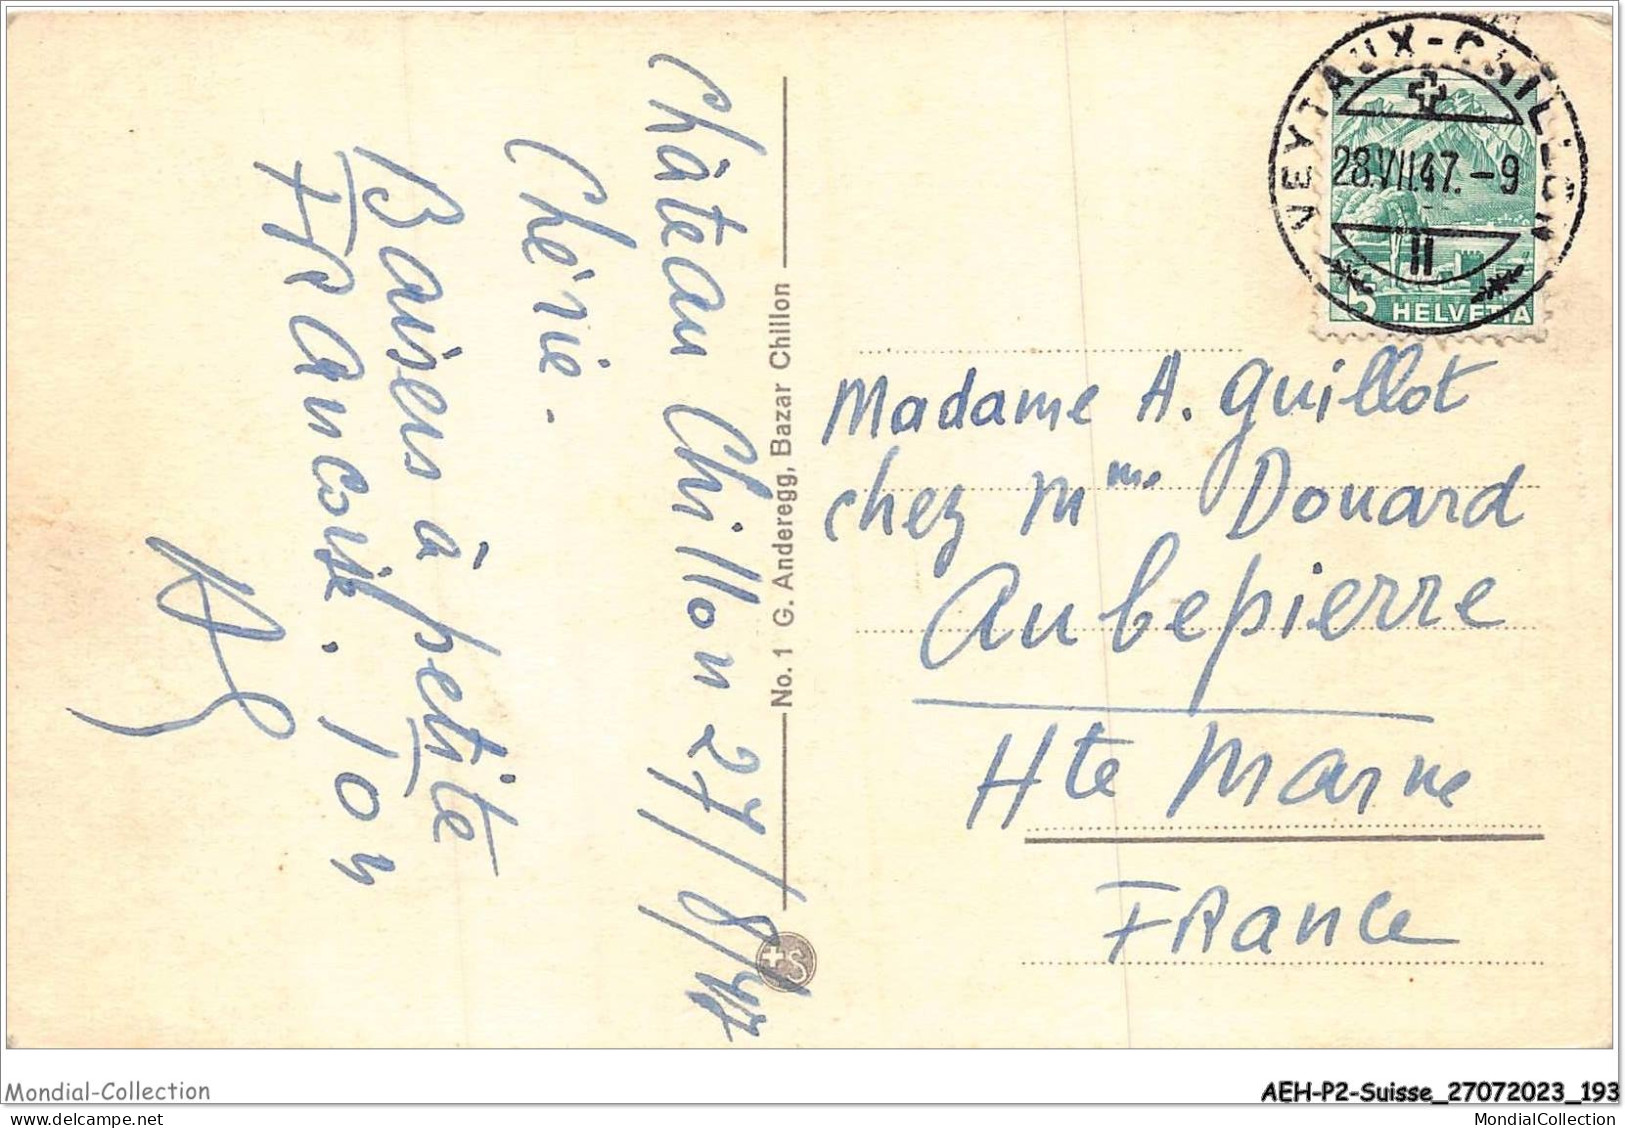 Château Chillon 27/8/47
Chérie.
Baisers à petite
FRançoise. Ton
No. 1 G. Anderegg, Bazar Chillon
VEYTAUX-CHILLON
28.VII.47.-9
II
5 HELVETIA
Madame A. Guillot
chez Mme Douard
Aubepierre
Hte Marne
FRance
Mondial-Collection
AEH-P2-Suisse_27072023_193
MondialCollection